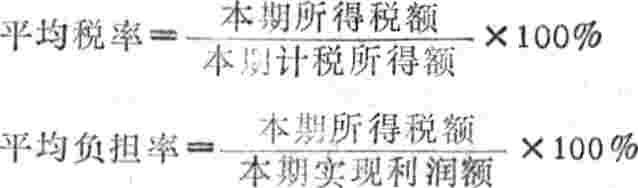 平均税率＝本期所得税额/本期计税所得额×100%
平均负担率＝本期所得税额/本期实现利润额×100%